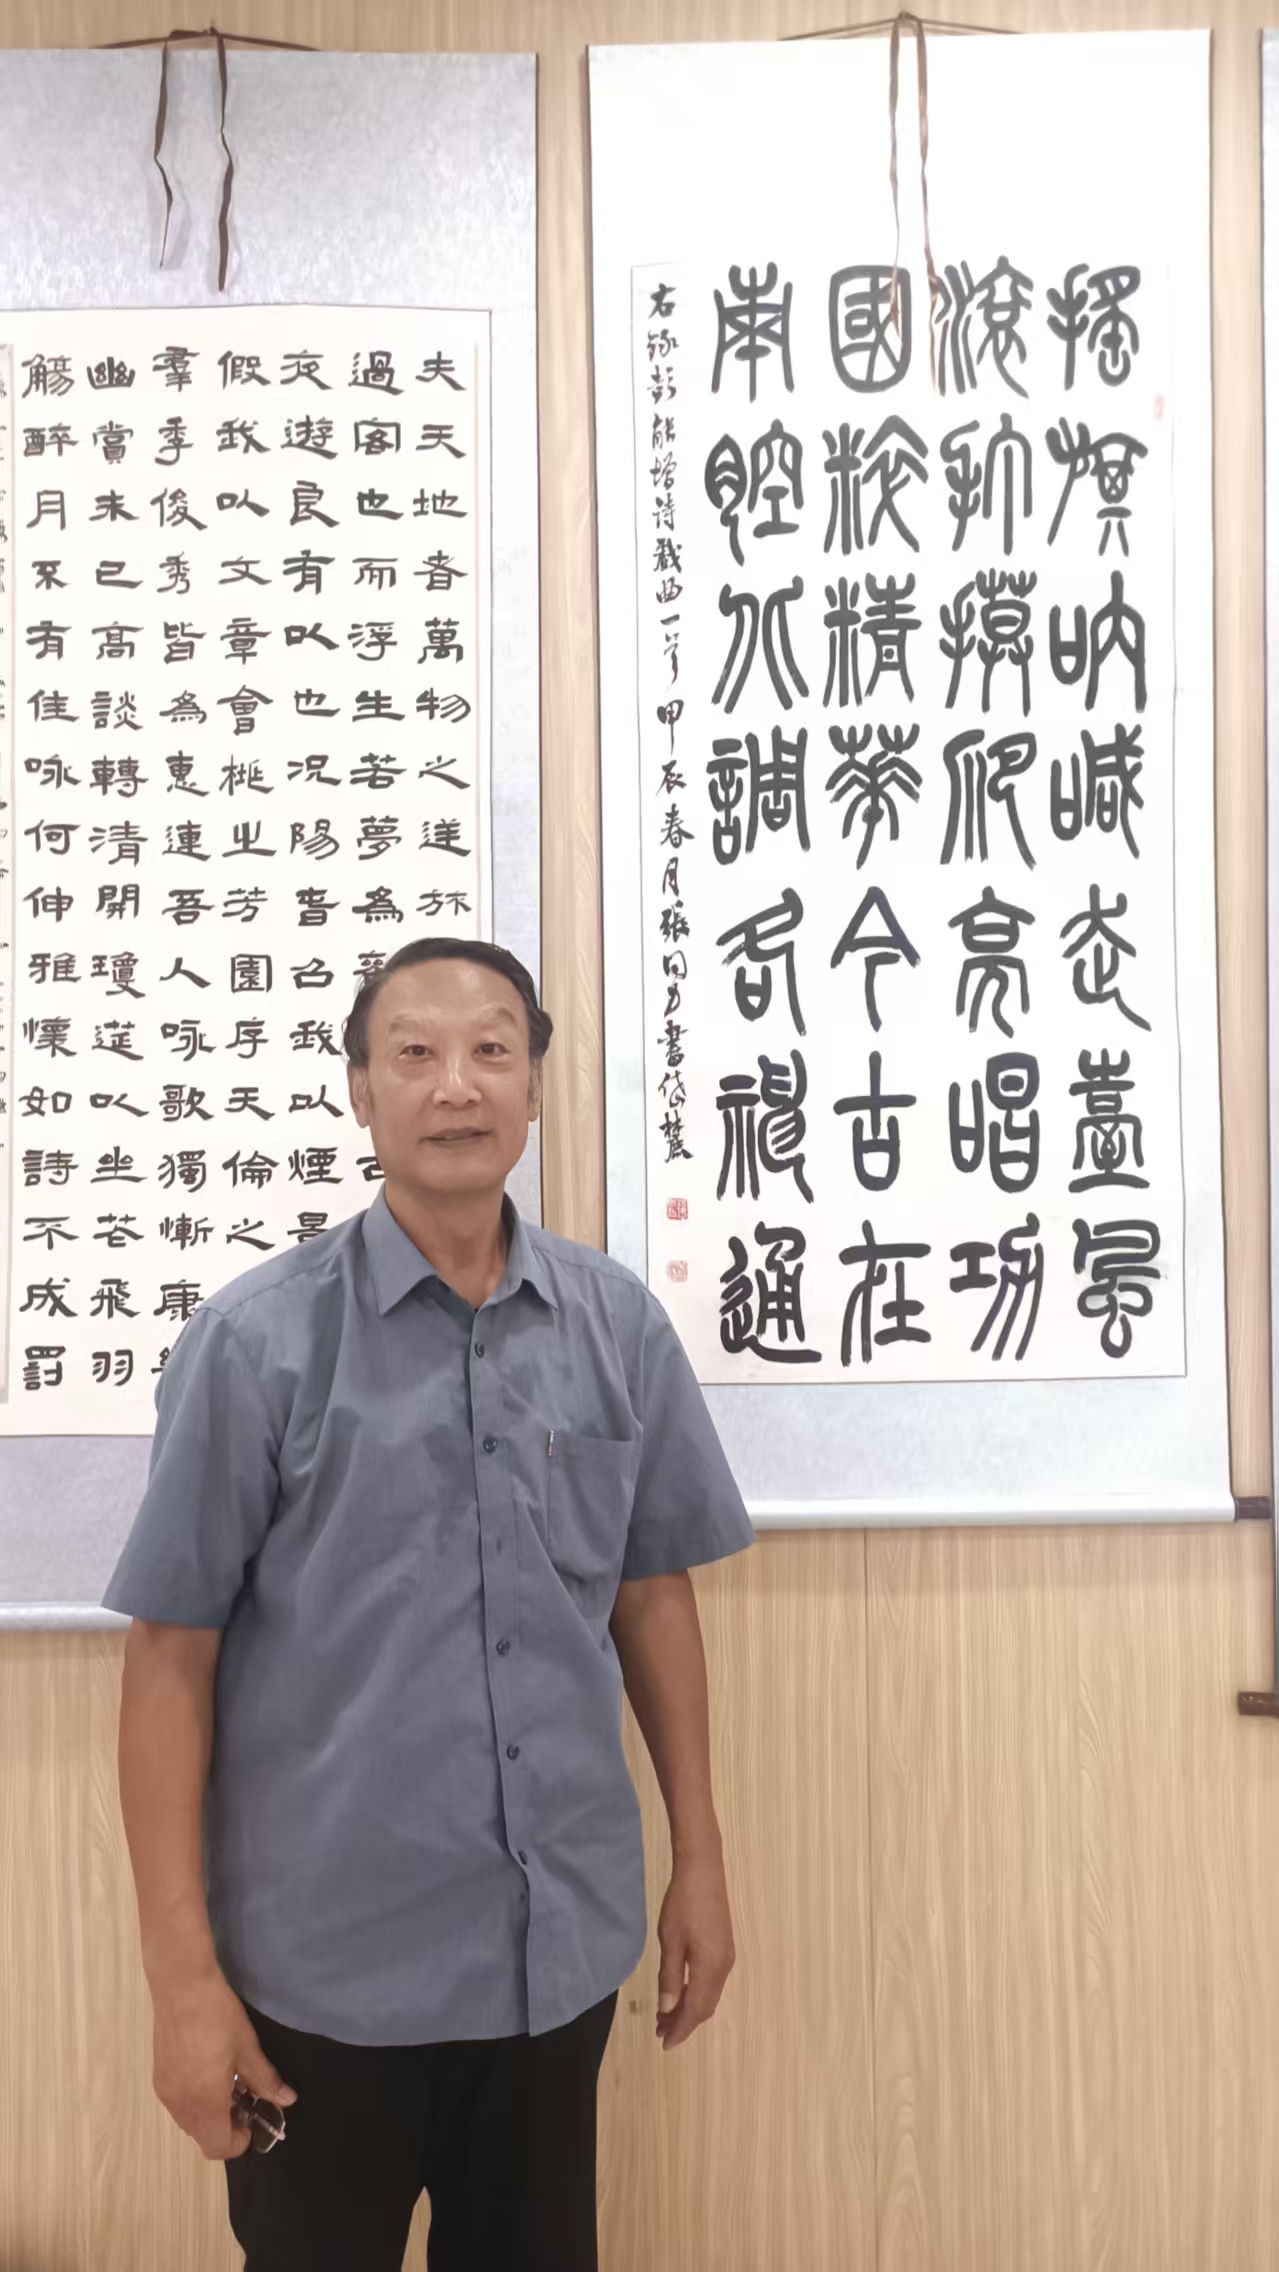 搖旗吶喊走臺風
滾打摸爬亮唱功
國粹精華今古在
南腔北調各神通
右錄彭能增诗戲曲一首甲辰春月張同力書岱麓
夫天地者萬物之逆旅
過客也而浮生若夢為
夜遊良有以也況陽春召我以煙景
假我以文章會桃之芳園序天倫之
羣季俊秀皆為惠連吾人咏歌獨慚康
幽賞未已高談轉清開瓊筵以坐花飛羽
觴醉月不有佳咏何伸雅懷如詩不成罰